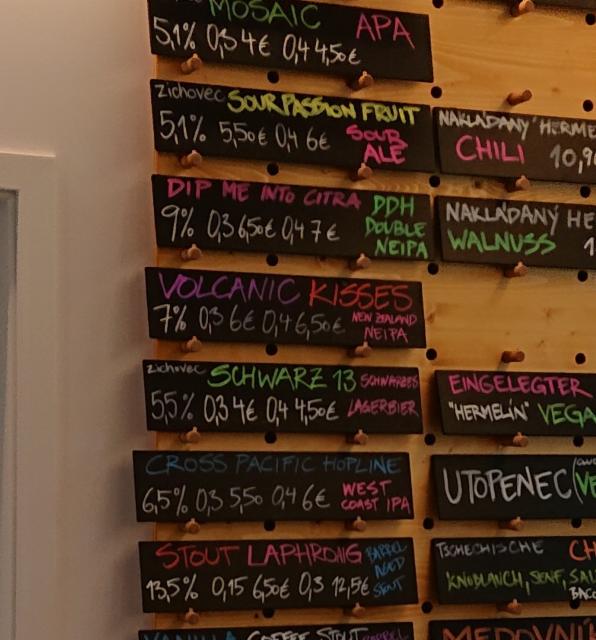 MOSAIC APA
5,1% 0,3 4€ 0,4 4,50€
zichovec SOUR PASSION FRUIT
5,1% 5,50€ 0,4 6€ SOUR
ALE
DIP ME INTO CITRA DDH
9% 0,3 6,50€ 0,4 7€ DOUBLE
NEIPA
VOLCANIC KISSES
7% 0,3 6€ 0,4 6,50€ NEW ZEALAND
NEIPA
zichovec SCHWARZ 13 SCHWARZES
5,5% 0,3 4€ 0,4 4,50€ LAGERBIER
CROSS PACIFIC HOPLINE
6,5% 0,3 5,50 0,4 6€ WEST
COAST IPA
STOUT LAPHROAIG BARREL
13,5% 0,15 6,50€ 0,3 12,5€ AGED
STOUT
COFFEE STOUT
NAKLÁDANÝ HERME
CHILI 10,9
NAKLÁDANÝ HE
WALNUSS 1
EINGELEGTER
"HERMELÍN" VEGA
UTOPENEC (VE
TSCHECHISCHE CH
KNOBLAUCH, SENF, SAL
BACO